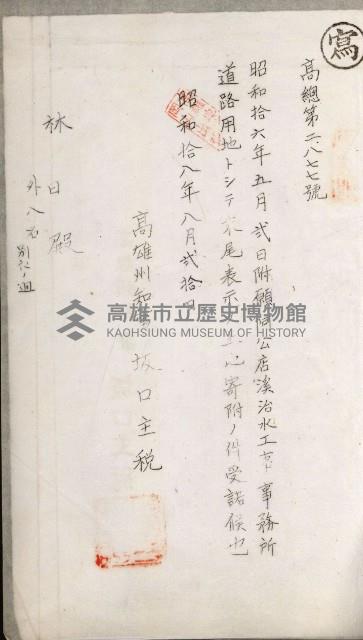 寫
高總第二八七七號
昭和拾六年五月弍日附願阿公店溪治水工事事務所
道路用地トシテ末尾表示ノ土地寄附ノ件受諾候也
昭和拾八年八月弍拾四
高雄州知事 坂口主税
林日殿
外八名
別紙ノ通
高雄市立歷史博物館
KAOHSIUNG MUSEUM OF HISTORY